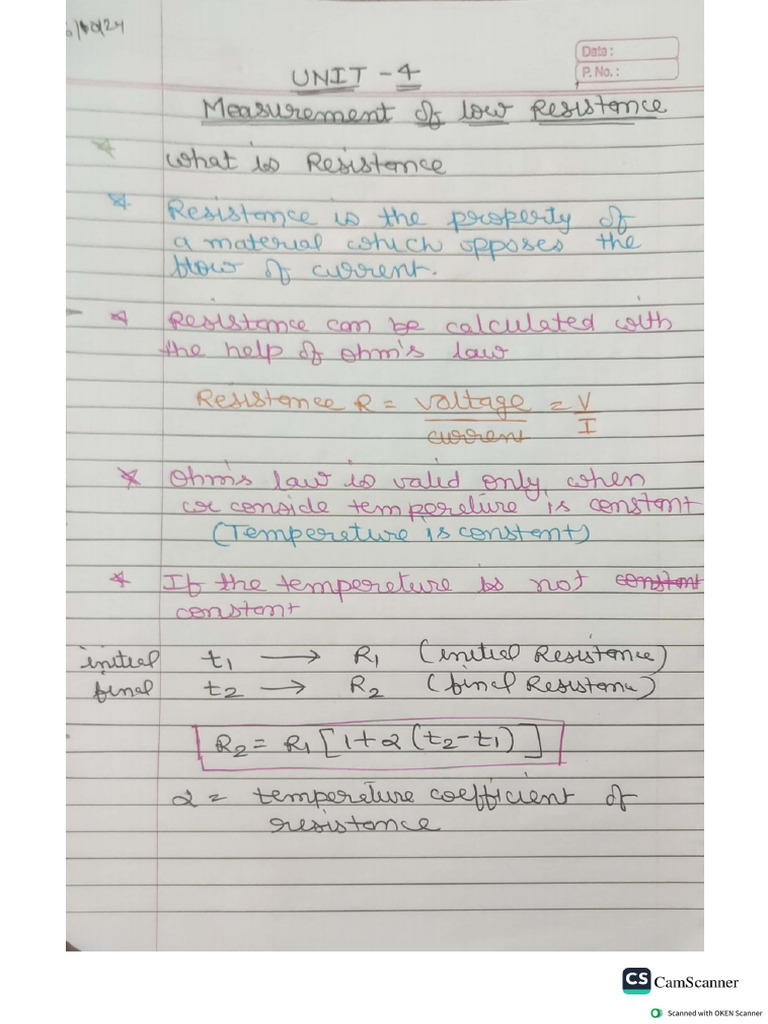 Date :
P. No. :
UNIT - 4
Measurement of low Resistance
What is Resistance
Resistance is the property of
a material which opposes the
flow of current.
Resistance can be calculated with
the help of ohm's law
Resistance R = voltage / current = V / I
Ohm's law is valid only when
or conside temperature is constant
(Temperature is constant)
If the temperature is not constant
constant
initial t1 → R1 (initial Resistance)
final t2 → R2 (final Resistance)
R2 = R1 [1+α (t2-t1)]
α = temperature coefficient of
resistance
CS CamScanner
Scanned with OKEN Scanner